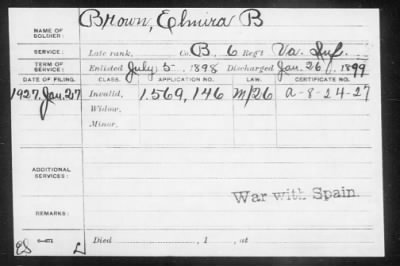 NAME OF SOLDIER: Brown, Elmira B
SERVICE: Late rank, Co. B, 6 Reg't Va. Inf.
TERM OF SERVICE: Enlisted July 5- 1898 Discharged Jan. 26, 1899
DATE OF FILING. CLASS. APPLICATION NO. LAW. CERTIFICATE NO.
1927, Jan. 27 Invalid, 1.569,146 M/26 a-8-24-27
Widow,
Minor,
ADDITIONAL SERVICES:
War with Spain.
REMARKS:
Died , 1 , at